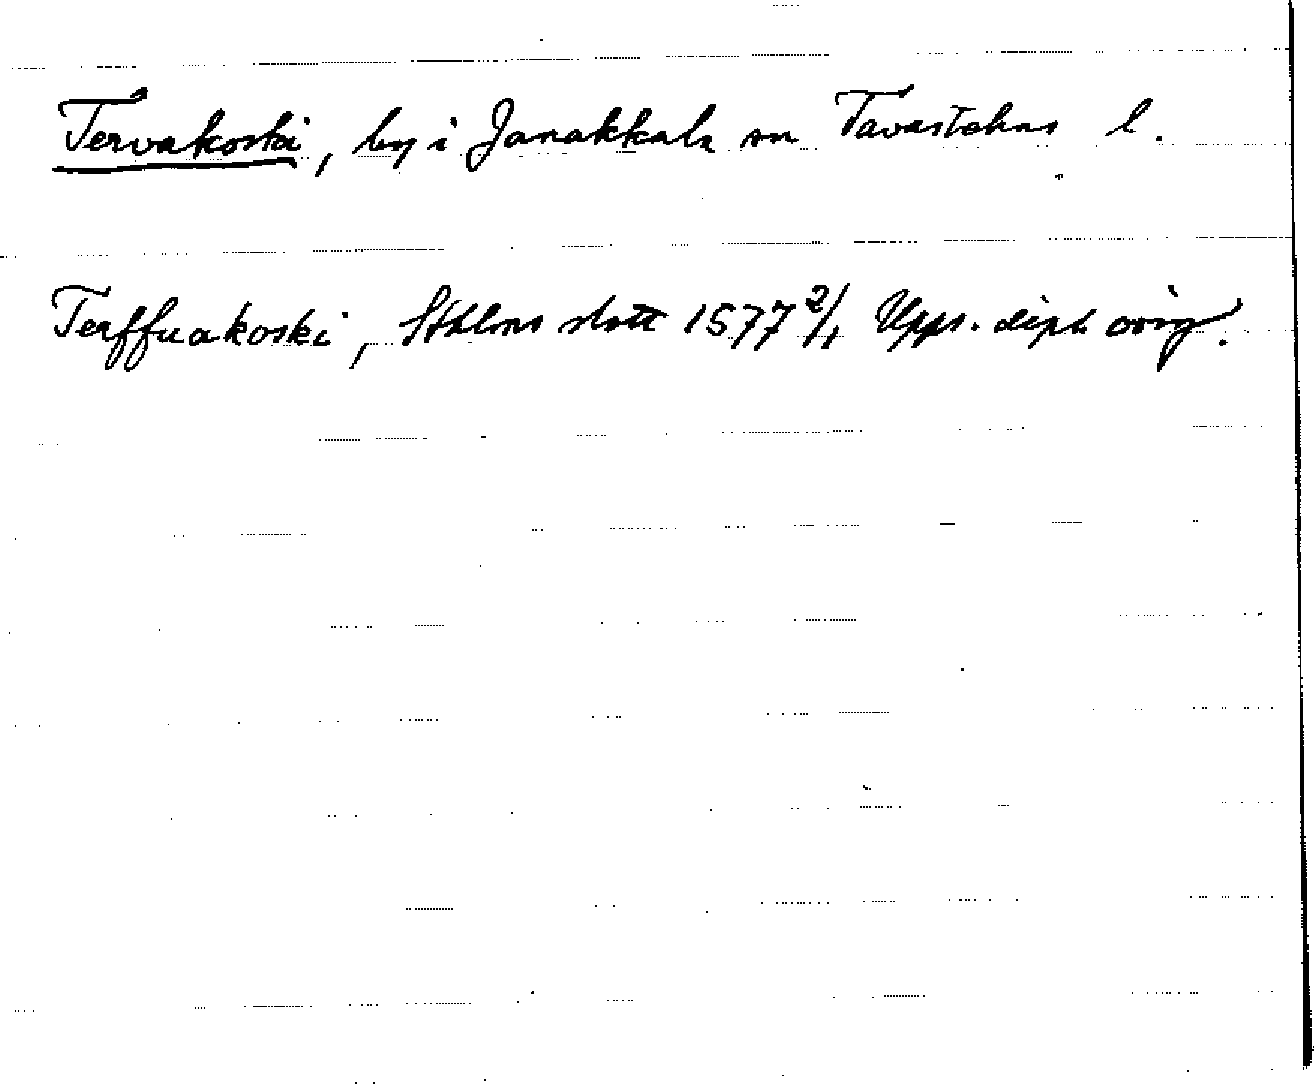 Tervakoski, by i Janakkala sn Tavastehus l.
Terffuakoski, Sthlms slott 1577 2/1 Upps. dipl. orig.